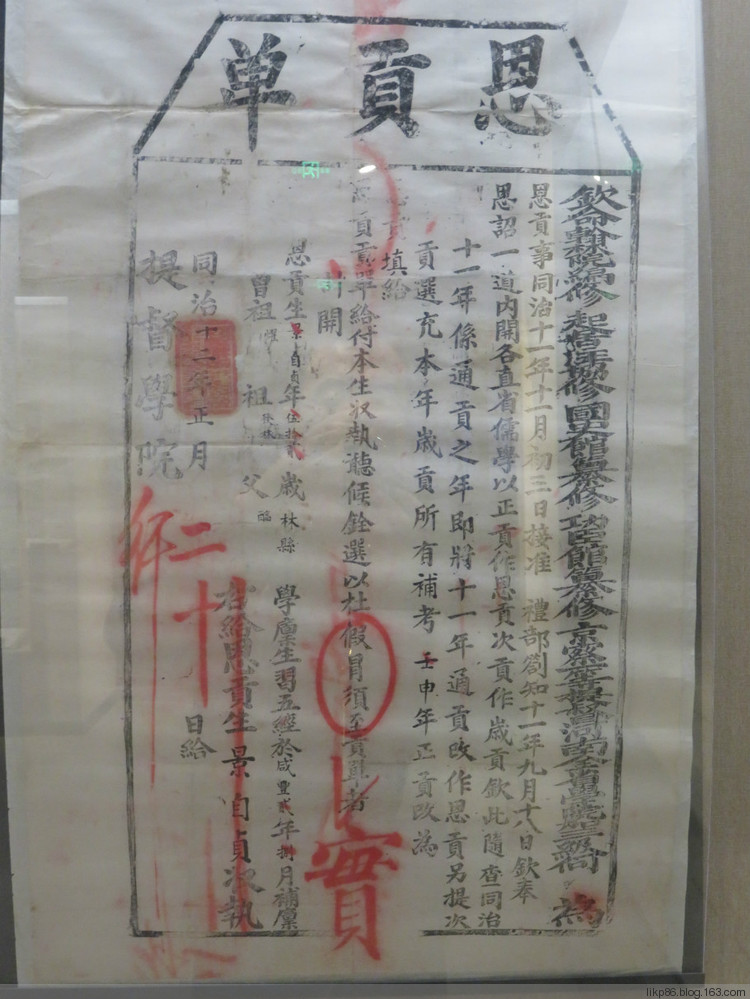 恩貢单
欽命翰林院編修 起居注協修 國史館纂修 功臣館纂修 京察一等提督河南全省學院 為
恩貢事同治十一年十一月初三日接准 禮部劄知十一年九月十八日欽奉
恩詔一道內開各直省儒學以正貢作恩貢次貢作歲貢欽此隨查同治
十一年係通貢之年即將十一年通貢改作恩貢另提次
貢選充本年歲貢所有補考壬申年正貢改為
填給
貢單給付本生收執聽候銓選以杜假冒須至貢單者
計開
恩貢生景自貞年伍拾貳歲林縣 學廩生習五經於咸豐貳年捌月補廩
曾祖耀 祖 父
右給恩貢生景自貞收執
同治十二年正月二十 日給
提督學院
實
likp86.blog.163.com